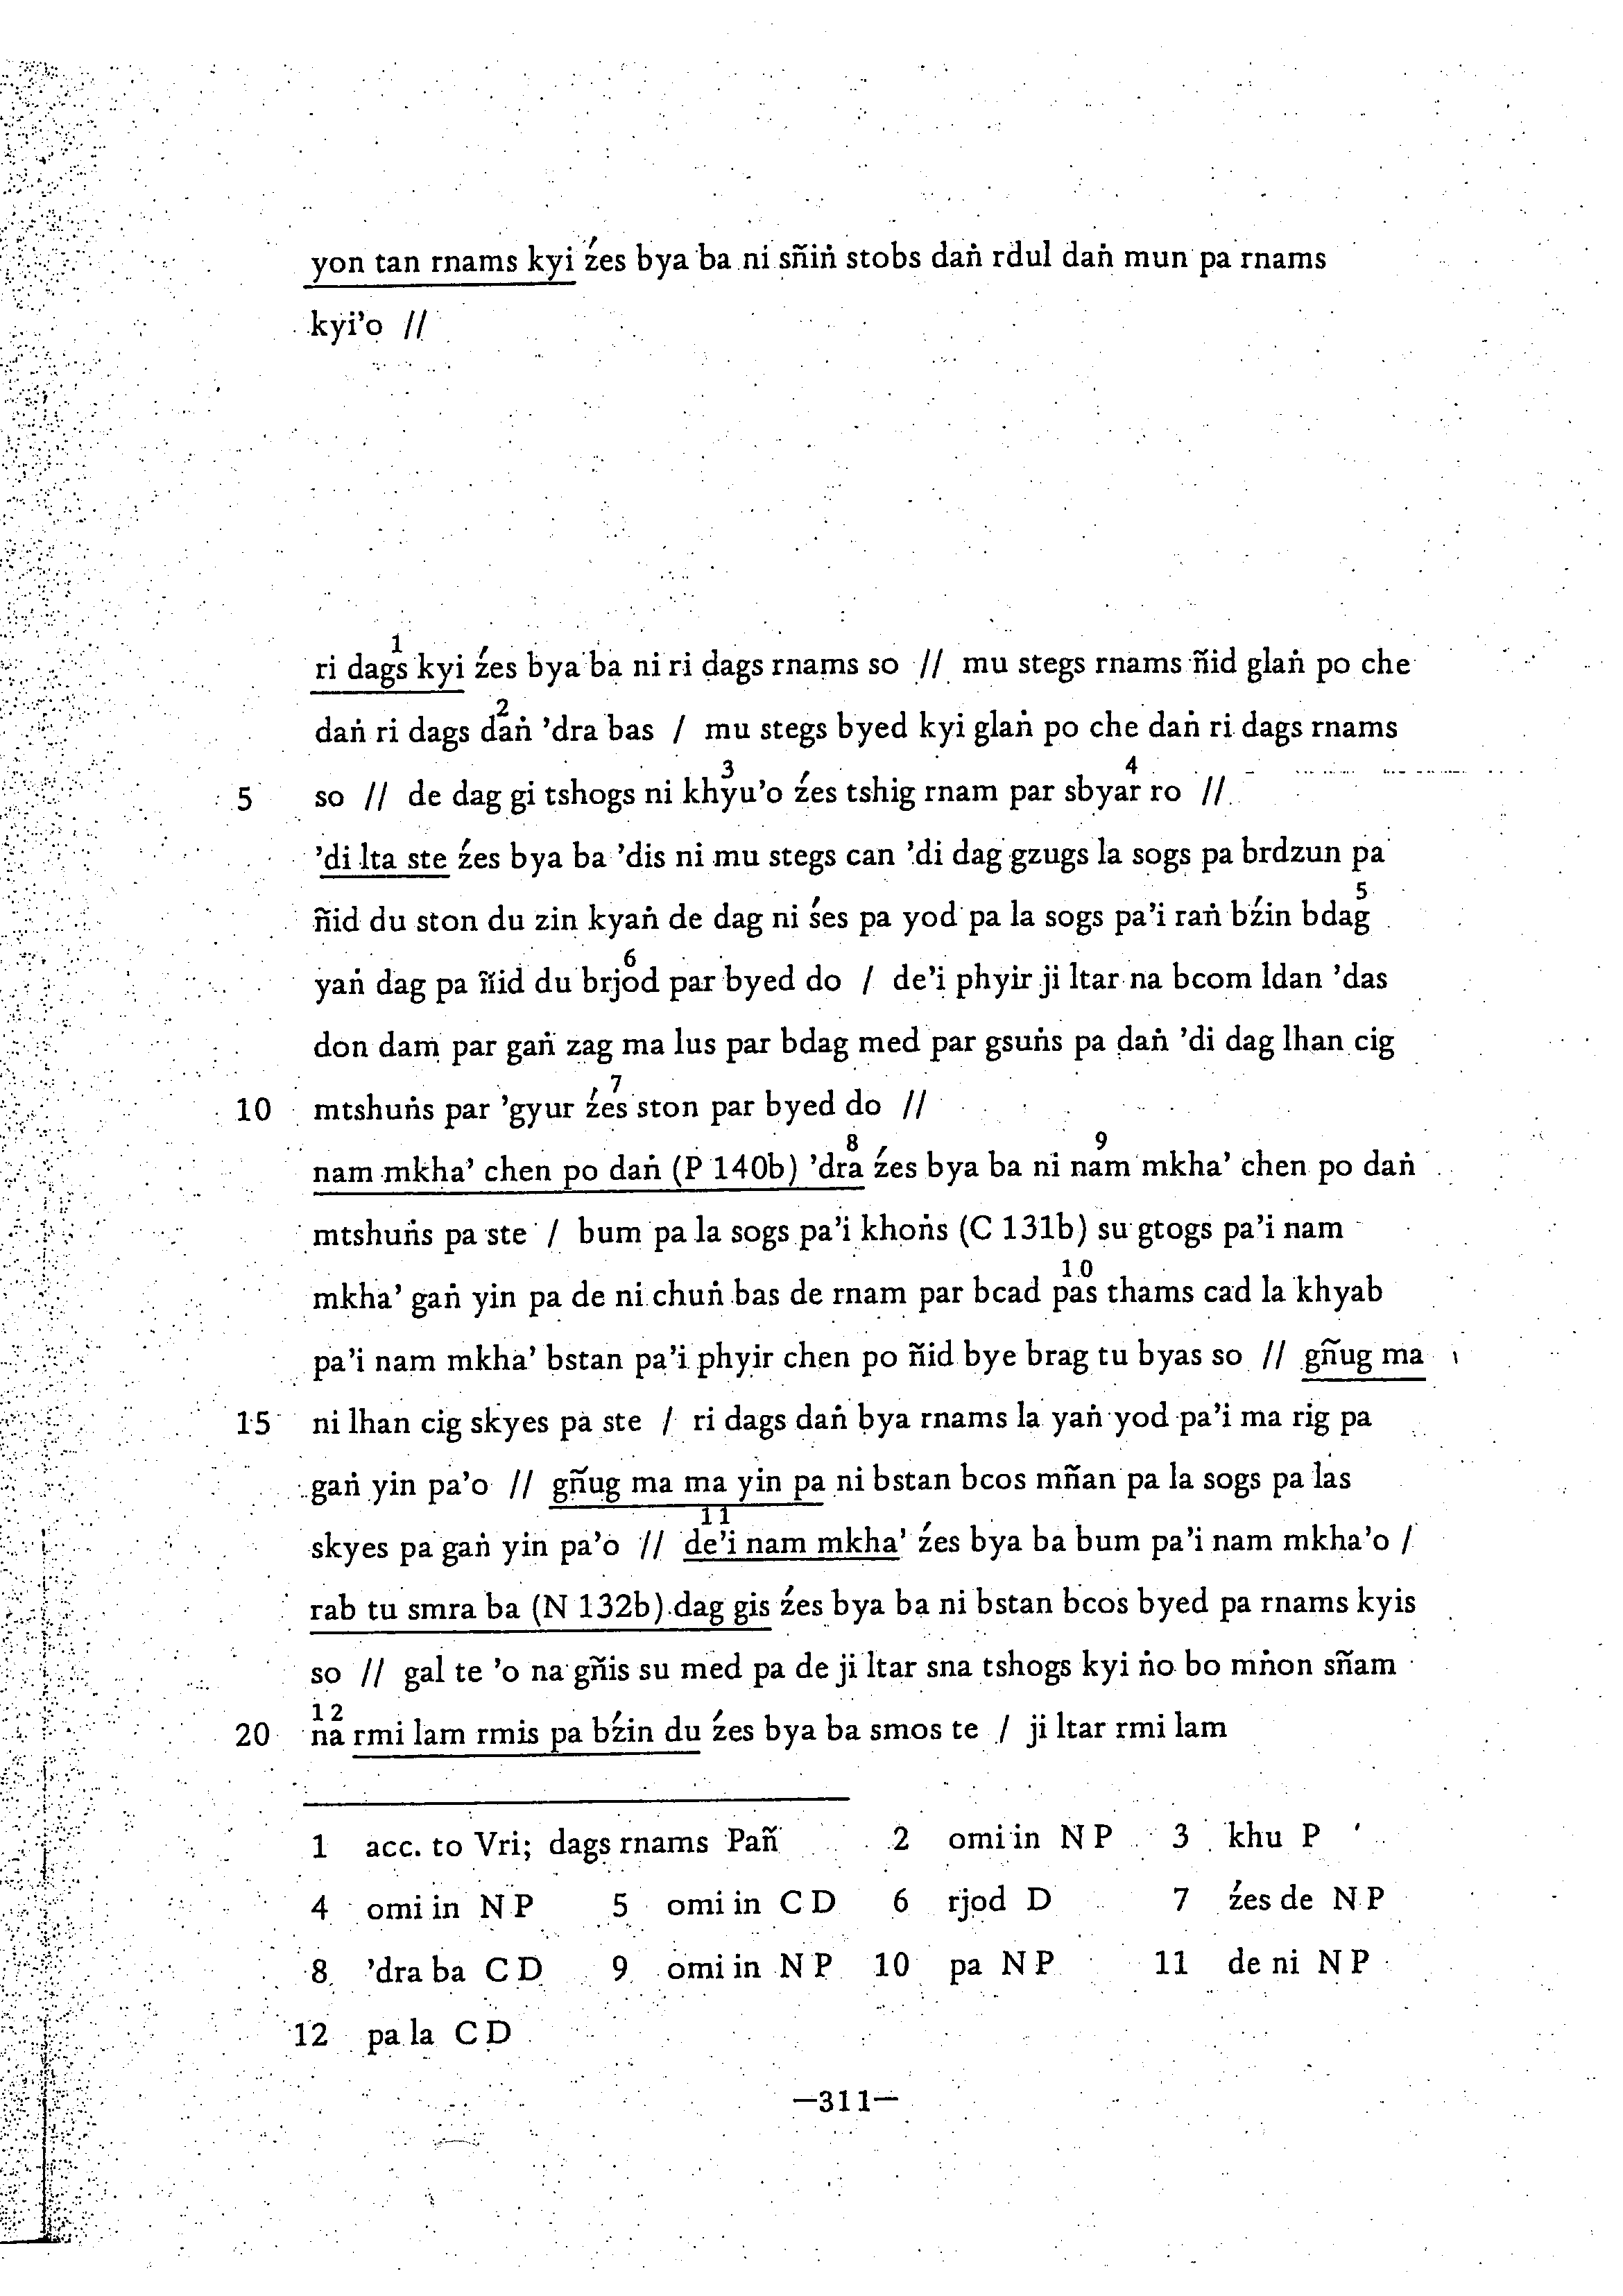 yon tan rnams kyi źes bya ba ni sñiṅ stobs daṅ rdul daṅ mun pa rnams
kyi’o //
ri dags1 kyi źes bya ba ni ri dags rnams so // mu stegs rnams ñid glaṅ po che
daṅ ri dags daṅ2 ’dra bas / mu stegs byed kyi glaṅ po che daṅ ri dags rnams
5 so // de dag gi tshogs ni khyu’o3 źes tshig rnam par sbyar4 ro //
’di lta ste źes bya ba ’dis ni mu stegs can ’di dag gzugs la sogs pa brdzun pa
ñid du ston du zin kyaṅ de dag ni śes pa yod pa la sogs pa’i raṅ bźin bdag5
yaṅ dag pa ñid du brjod6 par byed do / de’i phyir ji ltar na bcom ldan ’das
don dam par gaṅ zag ma lus par bdag med par gsuṅs pa daṅ ’di dag lhan cig
10 mtshuṅs par ’gyur źes7 ston par byed do //
nam mkha’ chen po daṅ (P 140b) ’dra8 źes bya ba ni nam9 mkha’ chen po daṅ
mtshuṅs pa ste / bum pa la sogs pa’i khoṅs (C 131b) su gtogs pa’i nam
mkha’ gaṅ yin pa de ni chuṅ bas de rnam par bcad pas10 thams cad la khyab
pa’i nam mkha’ bstan pa’i phyir chen po ñid bye brag tu byas so // gñug ma
15 ni lhan cig skyes pa ste / ri dags daṅ bya rnams la yaṅ yod pa’i ma rig pa
gaṅ yin pa’o // gñug ma ma yin pa ni bstan bcos mñan pa la sogs pa las
skyes pa gaṅ yin pa’o // de’i11 nam mkha’ źes bya ba bum pa’i nam mkha’o /
rab tu smra ba (N 132b) dag gis źes bya ba ni bstan bcos byed pa rnams kyis
so // gal te ’o na gñis su med pa de ji ltar sna tshogs kyi ṅo bo mṅon sñam
20 na12 rmi lam rmis pa bźin du źes bya ba smos te / ji ltar rmi lam
1 acc. to Vri; dags rnams Pañ 2 omi in N P 3 khu P
4 omi in N P 5 omi in C D 6 rjod D 7 źes de N P
8 ’dra ba C D 9 omi in N P 10 pa N P 11 de ni N P
12 pa la C D
—311—